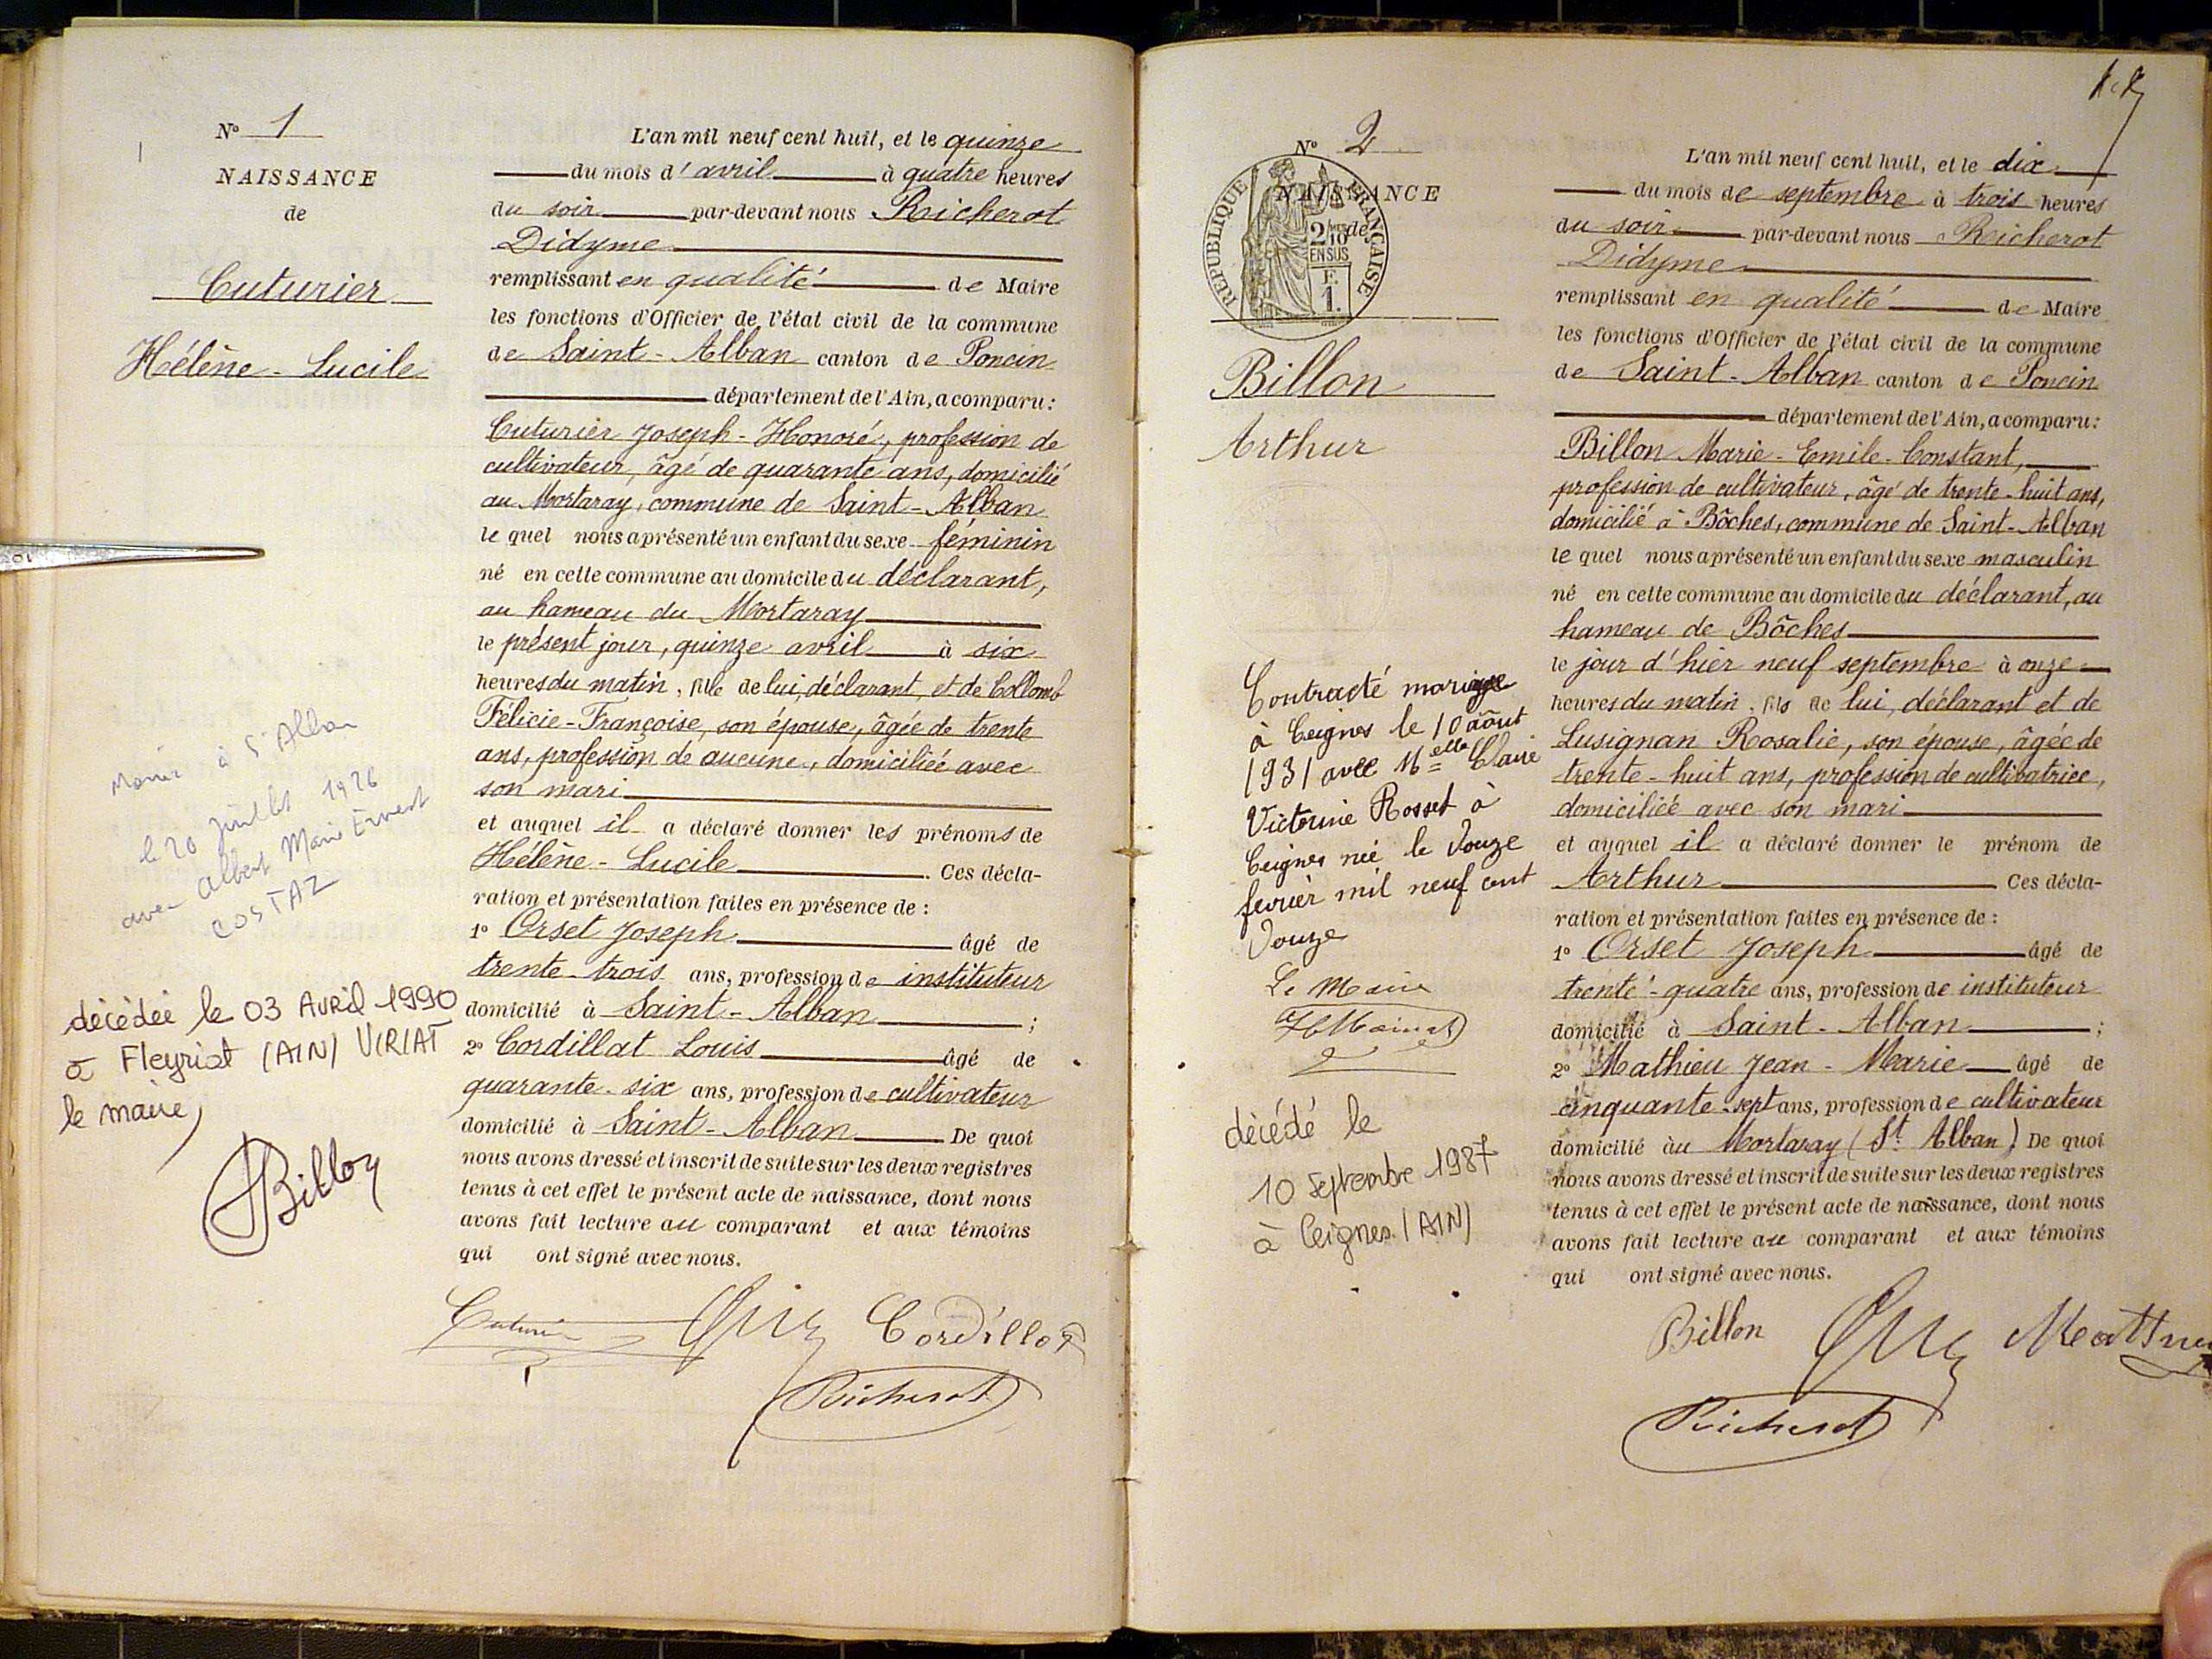 N° 1
NAISSANCE
de
Cuturier
Hélène-Lucile
Marié à St Alban
le 20 juillet 1926
avec Albert Marie Ernest
COSTAZ
décédée le 03 Avril 1990
à Fleyriat (AIN) VIRIAT
le maire,
Billon
L'an mil neuf cent huit, et le quinze
du mois d'avril à quatre heures
du soir par-devant nous Richerot
Didyme
remplissant en qualité de Maire
les fonctions d'Officier de l'état civil de la commune
de Saint-Alban canton de Poncin
département de l'Ain, a comparu:
Cuturier Joseph-Honoré, profession de
cultivateur, âgé de quarante ans, domicilié
au Mortaray, commune de Saint-Alban
le quel nous a présenté un enfant du sexe féminin
né en cette commune au domicile du déclarant,
au hameau du Mortaray
le présent jour, quinze avril à six
heures du matin, fille de lui, déclarant, et de Collomb
Félicie-Françoise, son épouse, âgée de trente
ans, profession de aucune, domiciliée avec
son mari
et auquel il a déclaré donner les prénoms de
Hélène-Lucile. Ces décla-
ration et présentation faites en présence de :
1° Orset Joseph âgé de
trente-trois ans, profession de instituteur
domicilié à Saint-Alban ;
2° Cordillat Louis âgé de
quarante-six ans, profession de cultivateur
domicilié à Saint-Alban De quoi
nous avons dressé et inscrit de suite sur les deux registres
tenus à cet effet le présent acte de naissance, dont nous
avons fait lecture au comparant et aux témoins
qui ont signé avec nous.
Cuturier Cordillat
Richerot
N° 2
NAISSANCE
de
REPUBLIQUE FRANÇAISE
2/10es
EN SUS
F.
1.
Billon
Arthur
Contracté mariage
à Ceignes le 10 août
1931 avec Melle Claire
Victorine Rosset à
Ceignes née le douze
février mil neuf cent
douze
Le Maire
décédé le
10 Septembre 1987
à Ceignes (AIN)
L'an mil neuf cent huit, et le dix
du mois de septembre à trois heures
du soir par-devant nous Richerot
Didyme
remplissant en qualité de Maire
les fonctions d'Officier de l'état civil de la commune
de Saint-Alban canton de Poncin
département de l'Ain, a comparu:
Billon Marie-Emile-Constant,
profession de cultivateur, âgé de trente-huit ans,
domicilié à Bôches, commune de Saint-Alban
le quel nous a présenté un enfant du sexe masculin
né en cette commune au domicile du déclarant, au
hameau de Bôches
le jour d'hier neuf septembre à onze
heures du matin, fils de lui, déclarant et de
Lusignan Rosalie, son épouse, âgée de
trente-huit ans, profession de cultivatrice,
domiciliée avec son mari
et auquel il a déclaré donner le prénom de
Arthur Ces décla-
ration et présentation faites en présence de :
1° Orset Joseph âgé de
trente-quatre ans, profession de instituteur
domicilié à Saint-Alban ;
2° Mathieu Jean-Marie âgé de
cinquante-sept ans, profession de cultivateur
domicilié au Mortaray (St. Alban) De quoi
nous avons dressé et inscrit de suite sur les deux registres
tenus à cet effet le présent acte de naissance, dont nous
avons fait lecture au comparant et aux témoins
qui ont signé avec nous.
Billon Matthieu
Richerot